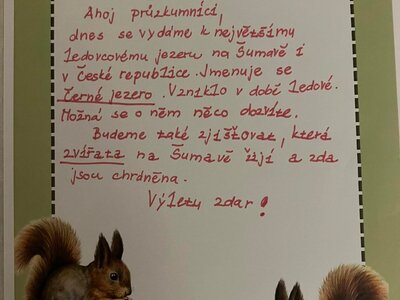 Ahoj průzkumníci,
dnes se vydáme k největšímu
ledovcovému jezeru na Šumavě i
v České republice. Jmenuje se
Černé jezero. Vzniklo v době ledové.
Možná se o něm něco dozvíte.
Budeme také zjišťovat, která
zvířata na Šumavě žijí a zda
jsou chráněna.
Výletu zdar!